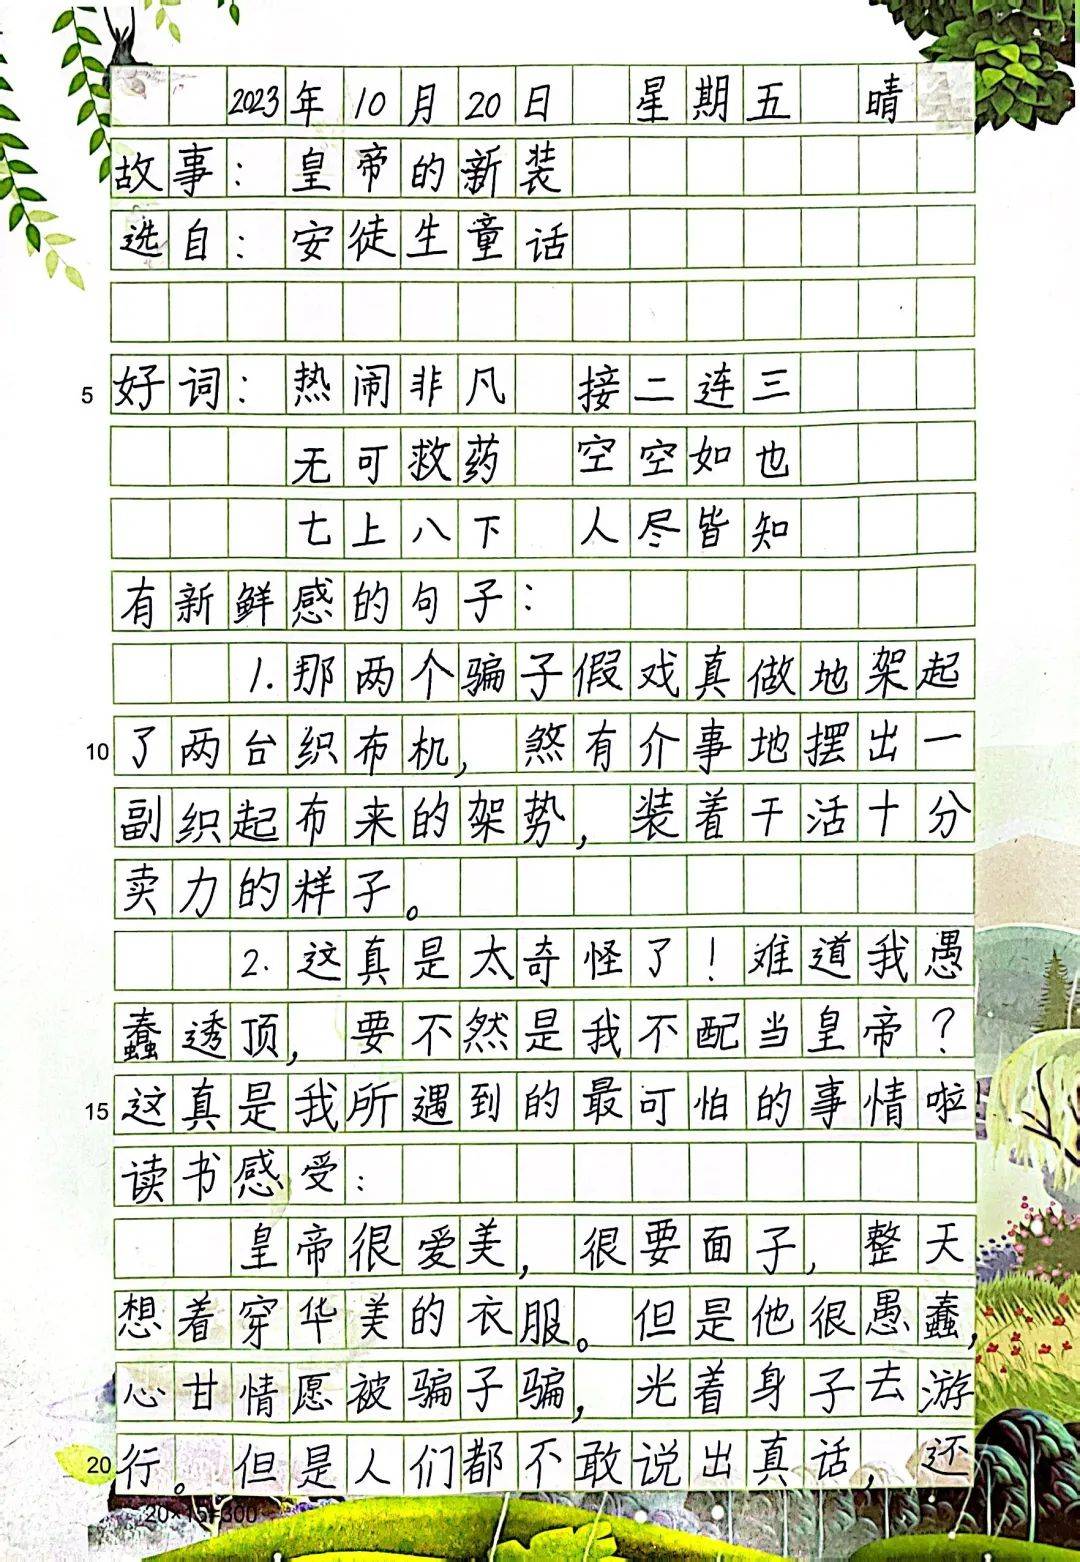 2023年10月20日 星期五 晴
故事：皇帝的新装
选自：安徒生童话
5 好词：热闹非凡 接二连三
无可救药 空空如也
七上八下 人尽皆知
有新鲜感的句子：
1.那两个骗子假戏真做地架起
10 了两台织布机，煞有介事地摆出一
副织起布来的架势，装着干活十分
卖力的样子。
2.这真是太奇怪了！难道我愚
蠢透顶，要不然是我不配当皇帝？
15 这真是我所遇到的最可怕的事情啦
读书感受：
皇帝很爱美，很要面子，整天
想着穿华美的衣服。但是他很愚蠢，
心甘情愿被骗子骗，光着身子去游
20 行。但是人们都不敢说出真话，还
20×15=300